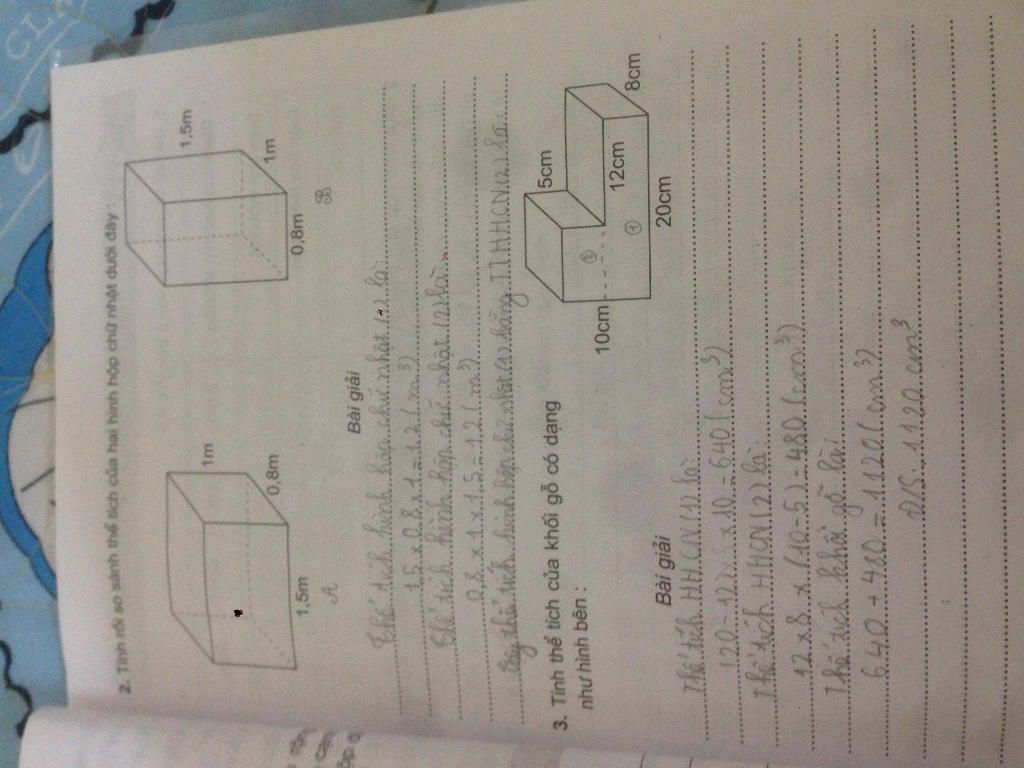 2. Tính rồi so sánh thể tích của hai hình hộp chữ nhật dưới đây :
1m
0,8m
1,5m
A
1,5m
1m
0,8m
B
Bài giải
Thể tích hình hộp chữ nhật (1) là:
1,5 x 0,8 x 1 = 1,2 (m³)
Thể tích hình hộp chữ nhật (2) là:
0,8 x 1 x 1,5 = 1,2 (m³)
Vậy thể tích hình hộp chữ nhật (1) bằng TT HHCN (2) là:
3. Tính thể tích của khối gỗ có dạng
như hình bên :
5cm
8cm
12cm
10cm
20cm
2
1
Bài giải
Thể tích HHCN (1) là:
(20 - 12) x 8 x 10 = 640 (cm³)
Thể tích HHCN (2) là:
12 x 8 x (10 - 5) = 480 (cm³)
Thể tích khối gỗ là:
640 + 480 = 1120 (cm³)
Đ/S: 1120 cm³